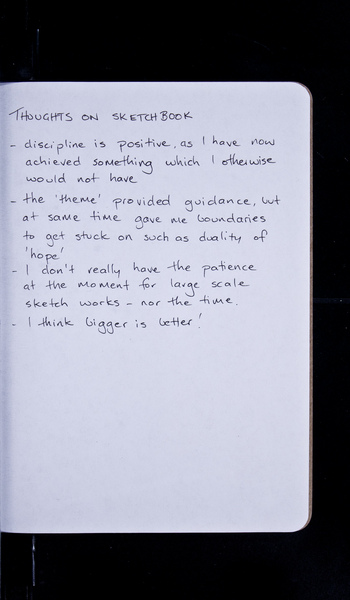 THOUGHTS ON SKETCHBOOK
- discipline is positive, as I have now
achieved something which I otherwise
would not have
- the 'theme' provided guidance, but
at same time gave me boundaries
to get stuck on such as duality of
'hope'
- I don't really have the patience
at the moment for large scale
sketch works - nor the time.
- I think bigger is better!